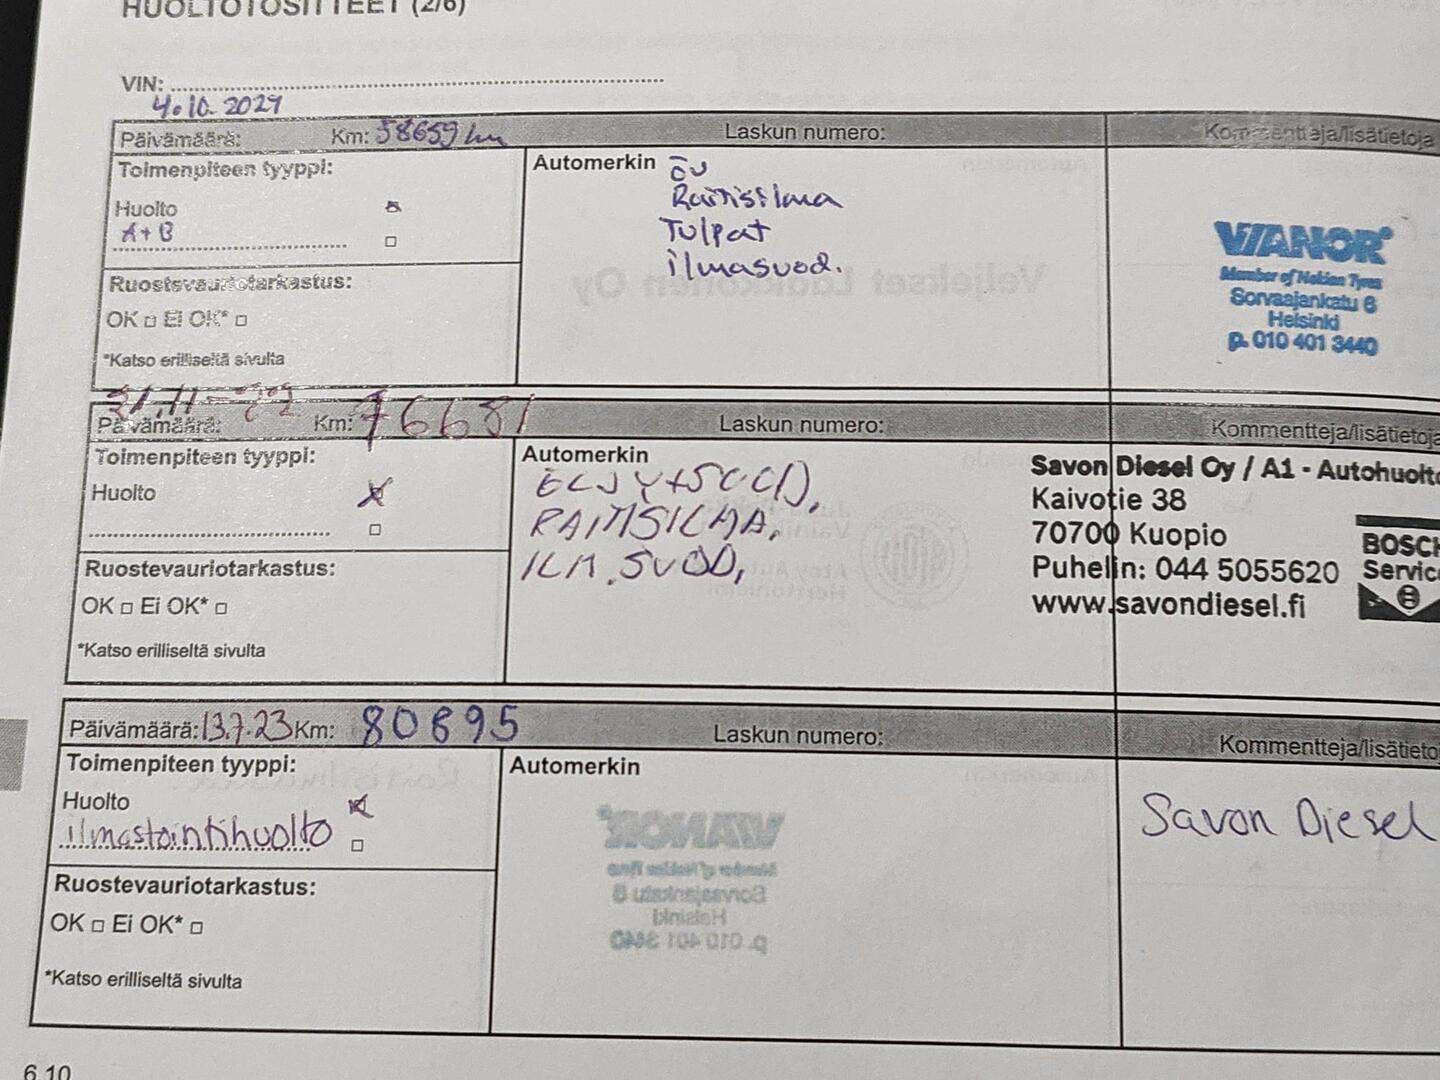 HUOLTOTOSITTEET (2/6)
VIN:
4.10.2021
Päivämäärä: Km: 58659 km Laskun numero: Kommentteja/lisätietoja
Toimenpiteen tyyppi:
Huolto
A+B
Ruostevauriotarkastus:
OK □ Ei OK* □
*Katso erilliseltä sivulta
Automerkin öv
Raitisilma
Tulpat
ilmasuod.
VIANOR
Member of Nokian Tyres
Sorvaajankatu 6
Helsinki
p. 010 401 3440
Päivämäärä: Km: 76681 Laskun numero: Kommentteja/lisätietoja
Toimenpiteen tyyppi:
Huolto
Ruostevauriotarkastus:
OK □ Ei OK* □
*Katso erilliseltä sivulta
Automerkin
RAITISILMA,
ILM.SUOD,
Savon Diesel Oy / A1 - Autohuolto
Kaivotie 38
70700 Kuopio
Puhelin: 044 5055620
www.savondiesel.fi
BOSCH
Service
Päivämäärä: 13.7.23 Km: 80895 Laskun numero: Kommentteja/lisätieto
Toimenpiteen tyyppi:
Huolto
ilmastointihuolto
Ruostevauriotarkastus:
OK □ Ei OK* □
*Katso erilliseltä sivulta
Automerkin
Savon Diesel
6.10